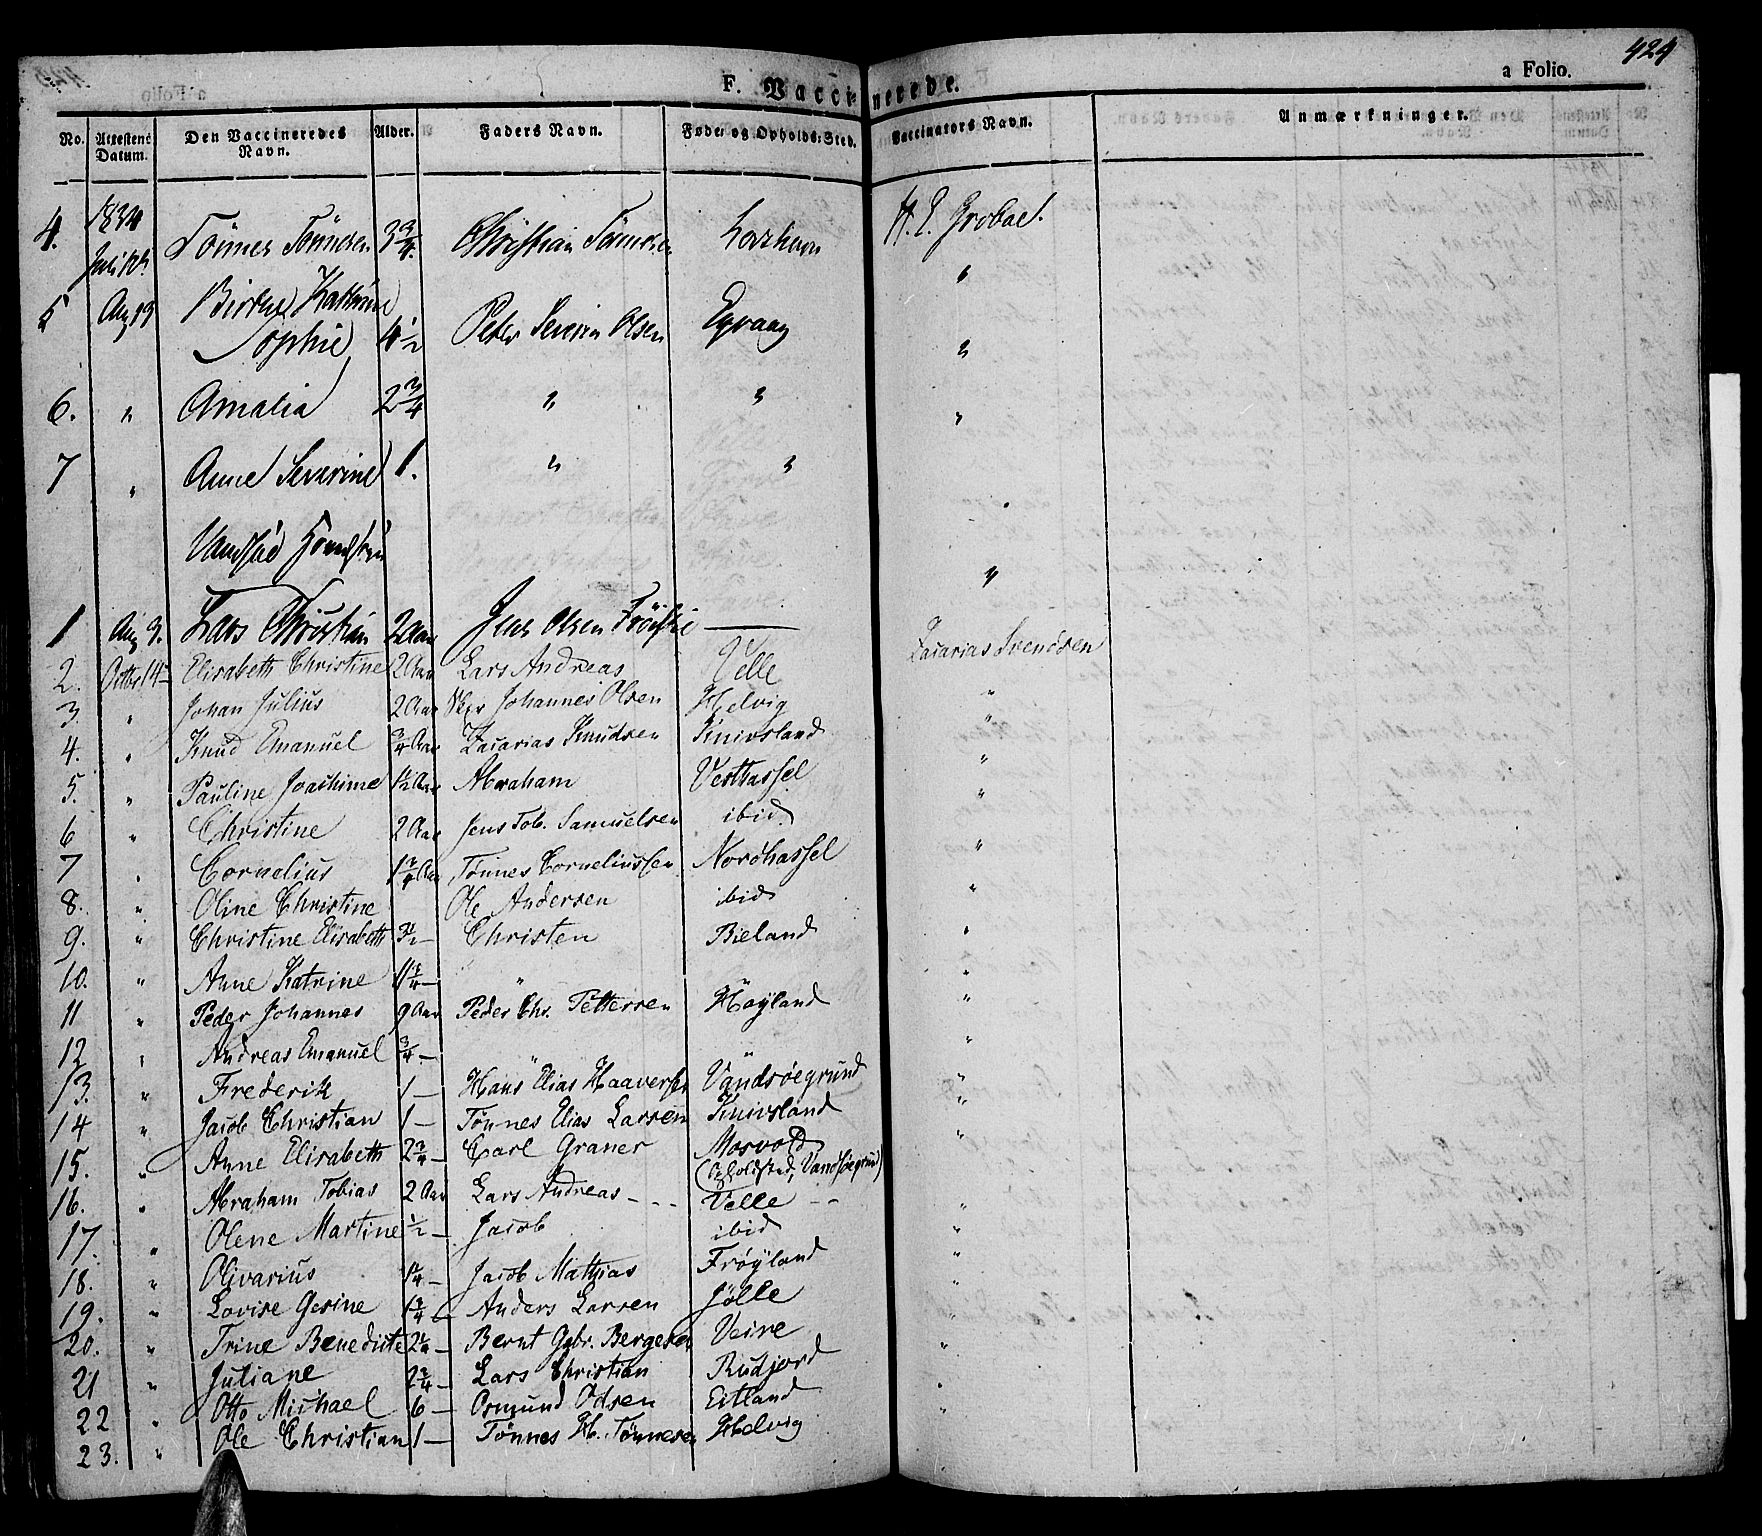 424
F. Vaccinerede.
a Folio.
No. Attestens Datum. Den Vaccineredes Navn. Alder. Faders Navn. Føde- og Opholds-Sted. Vaccinators Navn. Anmærkninger.
1834
4. Tönnes Tönnesen 3 3/4. Christian Tönnesen H. E. Grobae.
5 Aug 19 Birthe Kathrine
Sophie 4 1/2 Peter Severin Olsen Egvaag "
6. " Amalia 2 3/4 " " "
7 " Anne Severine 1. " "
1 Aug 9. Lars Christian 2 Aar Jens Olsen —
2. Octbr 14 - Elisabeth Christine 2 Aar Lars Andreas Velle Zacarias Svendsen
3 " Johan Julius 2 Aar Johannes Olsen Helvig "
4. " Knud Emanuel 3/4 Aar Zacarias Knudsen Knivsland "
5. " Pauline Joachime 1 1/2 Aar Abraham Vesthassel "
6 " Christine 2 Aar Jens Tob. Samuelsen ibid. "
7 " Cornelius 1 3/4 Aar Tønnes Corneliussen Nordhassel "
8. " Oline Christine Ole Andersen ibid "
9. " Christine Elisabeth 3 1/2 — Christen Bieland "
10. " Anne Katrine 1 3/4 — " "
11 " Peder Johannes 9 Aar Peder Chr. Pettersen Høyland "
12 " Andreas Emanuel 3/4 — " " "
13. " Frederik 1 — Hans Elias Haaversen Vandsøegrund "
14 " Jacob Christian 1 — Tønnes Elias Larsen Knivsland "
15. " Anne Elisabeth 2 3/4 — Carl Graner Mosvold "
(Opholdsted, Vandsøegrund)
16. " Abraham Tobias 2 Aar Lars Andreas - - - Velle - -
17. " Olene Martine 1/2 — Jacob ibid "
18. " Olivarius 1 1/4 — Jacob Mathias Frøyland "
19. " Lovise Gesine 1 3/4 Anders Larsen Jölle "
20. " Trine Benedicte 2 1/4 — Bernt Gbr. Bergesen Veire "
21 " Juliane 2 3/4 — Lars Christian Rudjord "
22 " Otto Michael 6 — Osmund Odsen Eitland "
23. " Ole Christian 1 — Tønnes H. Tønnesen Helvig